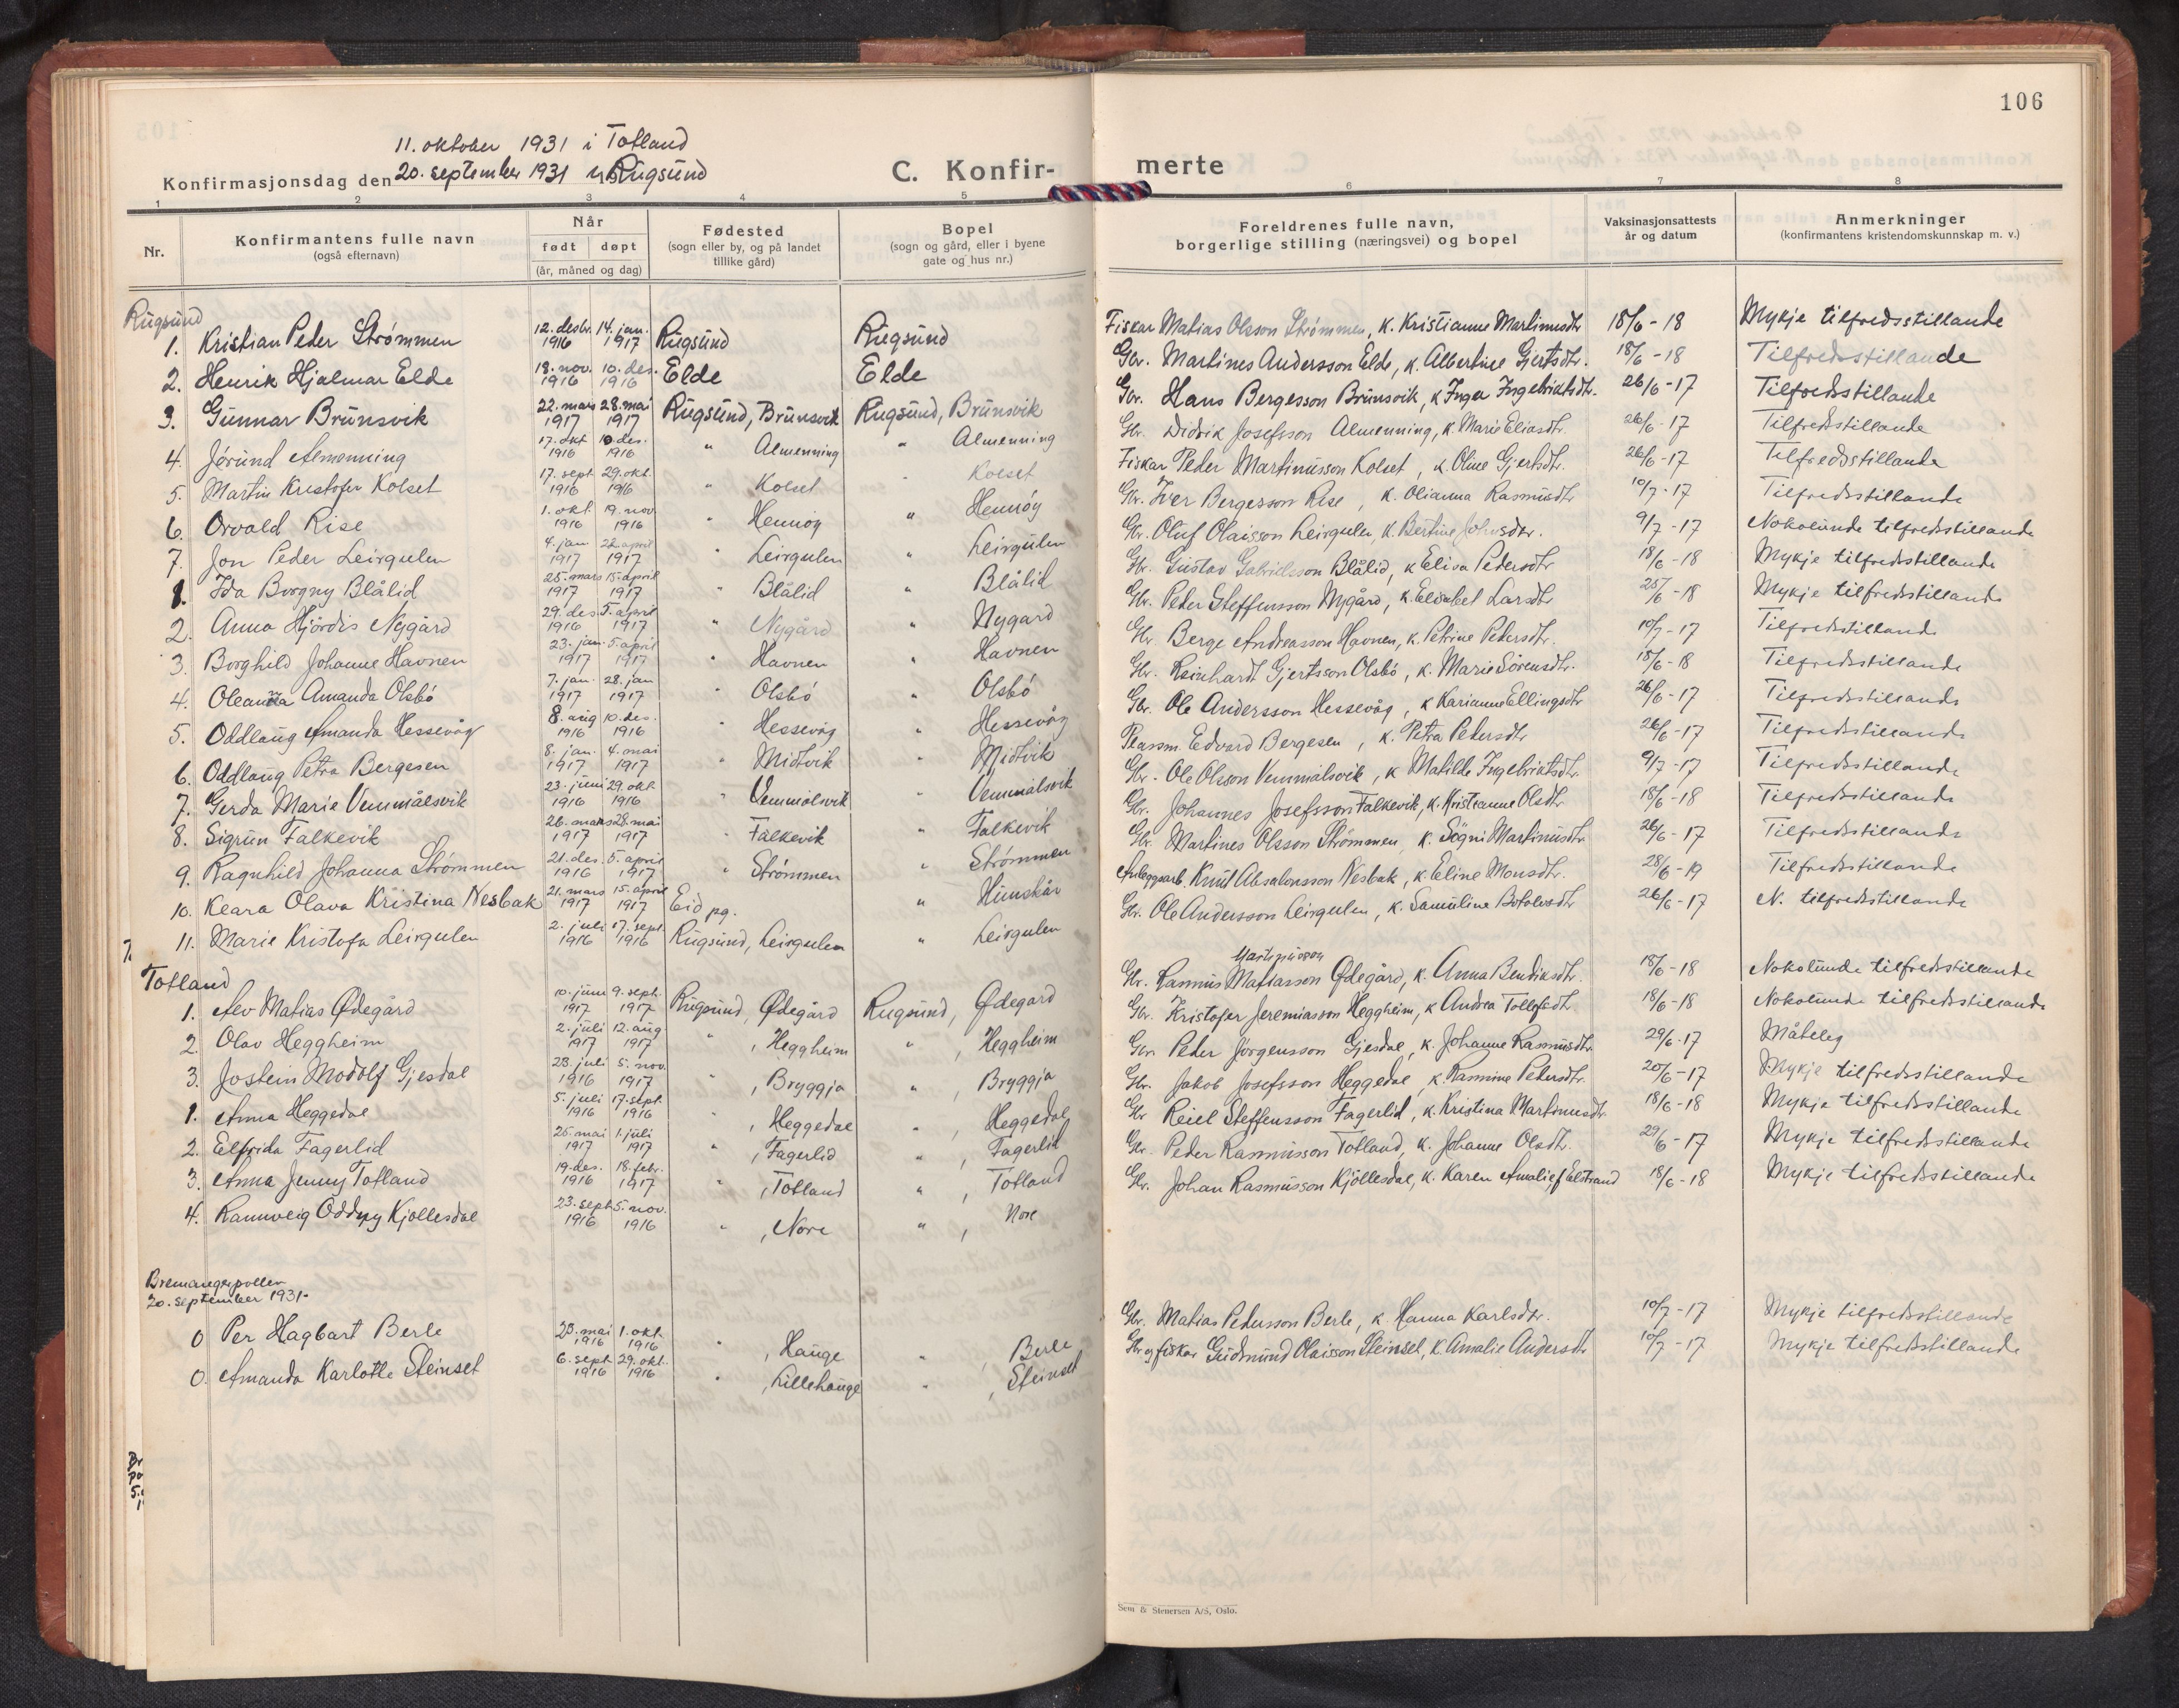 106
11. oktober 1931 i Totland
Konfirmasjonsdag den 20. september 1931 i Rugsund
C. Konfir-
merte
1 2 3 4 5 6 7 8
Nr.
Konfirmantens fulle navn
(også efternavn)
Når
født døpt
(år, måned og dag)
Fødested
(sogn eller by, og på landet
tillike gård)
Bopel
(sogn og gård, eller i byene
gate og hus nr.)
Foreldrenes fulle navn,
borgerlige stilling (næringsvei) og bopel
Vaksinasjonsattests
år og datum
Anmerkninger
(konfirmantens kristendomskunnskap m. v.)
Rugsund
1. Kristian Peder Strømmen 12. desbr. 1916 14. jan. 1917 Rugsund Rugsund Fiskar Matias Olsson Strømmen, k. Kristianne Martinusdtr 18/6 - 18 Mykje tilfredsstillande
2. Henrik Hjalmar Elde 18. nov. 1916 10. des. 1916 Elde Elde Gbr. Martines Andersson Elde, k. Albertine Gjertsdtr. 18/6 - 18 Tilfredsstillande
3. Gunnar Brunsvik 22. mars 1917 28. mai 1917 Rugsund, Brunsvik Rugsund, Brunsvik Gbr. Hans Bergesson Brunsvik, k Inga Ingebriktsdtr. 26/6 - 17 Tilfredsstillande
4. Jørund Almenning 17. okt 1916 10. des. 1916 " Almenning " Almenning Gbr. Didrik Josefsson Almenning, k. Marie Eliasdtr. 26/6 - 17 Tilfredsstillande
5. Martin Kristofer Kolset 17. sept 1916 29. okt. 1916 " Kolset " Kolset Fiskar Peder Martinusson Kolset, k. Oline Gjertsdtr. 26/6 - 17 Tilfredsstillande
6. Orvald Rise 1. okt. 1916 19. nov 1916 " Hennøy " Hennøy Gbr. Iver Bergesson Rise, k. Olianna Rasmusdtr 10/7 - 17 Tilfredsstillande
7. Jon Peder Leirgulen 4. jan 1917 22. april 1917 " Leirgulen " Leirgulen Gbr. Oluf Olaisson Leirgulen, k. Bertine Johnsdtr. 9/7 - 17 Nokolunde tilfredsstillande
1. Ida Borgny Blålid 25. mars 1917 15. april 1917 " Blålid " Blålid Gbr. Gustav Gabrielsson Blålid, k Elisa Pedersdtr 18/6 - 18 Mykje tilfredsstillande
2. Anna Hjördis Nygård 29. des 1916 5. april 1917 " Nygård " Nygard Gbr. Peder Steffensson Nygård, k. Elisabet Larsdtr 25/6 - 18 Mykje tilfredsstillande
3. Borghild Johanne Havnen 23. jan. 1917 5. april 1917 " Havnen " Havnen Gbr Berge Andreasson Havnen, k. Petrine Pedersdtr. 10/7 - 17 Tilfredsstillande
4. Oleanna Amanda Olsbö 7. jan. 1917 28. jan 1917 " Olsbö " Olsbö Gbr. Reinhardt Gjertsson Olsbö, k. Marie Sörensdtr. 18/6 - 18 Tilfredsstillande
5. Oddlaug Amanda Hessevåg 8. aug 1916 10. des. 1916 " Hessevåg " Hessevåg Gbr. Ole Andersson Hessevåg, k Karianne Ellingsdtr 26/6 - 17 Tilfredsstillande
6. Oddlaug Petra Bergesen 8. jan. 1917 4. mai 1917 " Midtvik " Midtvik Plassm. Edvard Bergesen, k. Petra Pedersdtr 26/6 - 17 Tilfredsstillande
7. Gerda Marie Vemmålsvik 23. juni 1916 29. okt. 1916 " Vemmålsvik " Vemmålsvik Gbr. Ole Olsson Vemmålsvik, k Matilde Ingebriktsdtr. 9/7 - 17 Tilfredsstillande
8. Sigrun Falkevik 26. mars 1917 28. mai 1917 " Falkevik " Falkevik Gbr. Johannes Josefsson Falkevik, k. Kristianne Olsdtr 18/6 - 18 Tilfredsstillande
9. Ragnhild Johanna Strömmen 21. des. 1916 5. april 1917 " Strömmen " Strömmen Gbr. Martines Olsson Strömmen, k. Signi Martinusdtr 26/6 - 17 Tilfredsstillande
10. Klara Olava Kristina Nesbak 21. mars 1917 15. april 1917 Eid pg. " Hunskår Anleggsarb. Knut Absalonsson Nesbak, k. Eline Monsdtr. 28/6 - 19 Tilfredsstillande
11. Marie Kristofa Leirgulen 2. juli 1916 17. sept. 1916 Rugsund, Leirgulen " Leirgulen Gbr. Ole Andersson Leirgulen, k. Samuline Botolvsdtr 26/6 - 17 N. tilfredsstillande
Totland
Martinusson
1. Alv Matias Ødegård 10. juni 1917 9. sept. 1917 Rugsund, Ødegård Rugsund, Ødegard Gbr. Rasmus Matiasson Ødegård, k. Anna Bendiksdtr. 18/6 - 18 Nokolunde tilfredsstillande
2. Olav Heggheim 2. juli 1917 12. aug 1917 ", Heggheim ", Heggheim Gbr. Kristofer Jeremiasson Heggheim, k Andrea Tollefsdtr 18/6 - 18 Nokolunde tilfredsstillande
3. Jostein Modolf Gjesdal 28. juli 1916 5. nov. 1917 ", Bryggja ", Bryggja Gbr. Peder Jörgensson Gjesdal, k. Johanne Rasmusdtr 29/6 - 17 Måteleg
1. Anna Heggedal 5. juli 1916 17. sept. 1916 ", Heggedal ", Heggedal Gbr. Jakob Josefsson Heggedal, k. Rasmine Pedersdtr. 20/6 - 17 Mykje tilfredsstillande
2. Elfrida Fagerlid 25. mai 1917 1. juli 1917 ", Fagerlid ", Fagerlid Gbr Reiel Steffensson Fagerlid, k. Kristina Martinusdtr 18/6 - 18 Mykje tilfredsstillande
3. Anna Jenny Totland 19. des. 1916 18. febr. 1917 ", Totland ", Totland Gbr. Peder Rasmusson Totland, k. Johanne Olsdtr. 29/6 - 17 Mykje tilfredsstillande
4. Rannveig Oddny Kjöllesdal 23. sept 1916 5. nov. 1916 ", Nore ", Nore Gbr. Johan Rasmusson Kjöllesdal, k. Karen Amalie f Elstrand 18/6 - 18 Mykje tilfredsstillande
Bremangerpollen
20. september 1931.
0 Per Hagbart Berle 28. mai 1916 1. okt. 1916 ", Hauge ", Berle Gbr. Matias Pedersson Berle, k. Hanna Karlsdtr. 10/7 - 17 Mykje tilfredsstillande
0. Amanda Karlotte Steinset 6. sept 1916 29. okt. 1916 ", Lillehauge ", Steinset Gbr og fiskar Gudmund Olaisson Steinset, k. Amalie Andersdtr 10/7 - 17 Mykje tilfredsstillande
Sem & Stenersen A/S, Oslo.